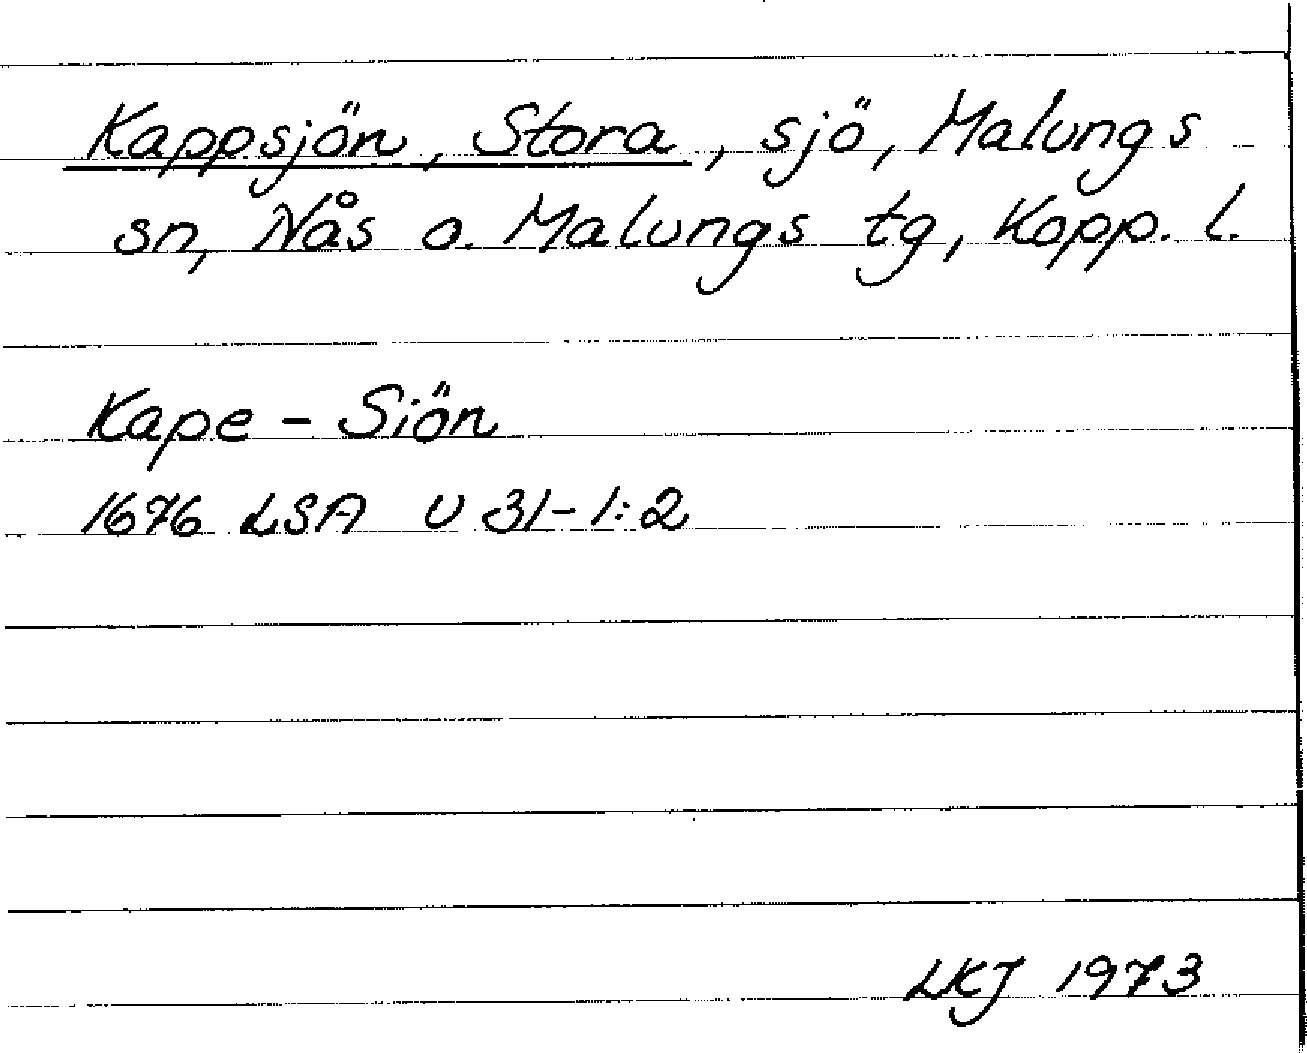 Kappsjön, Stora, sjö, Malungs
sn, Nås o. Malungs tg, Kopp. l.
Kape - Siön
1676 LSA U 31-1:2
LKJ 1973